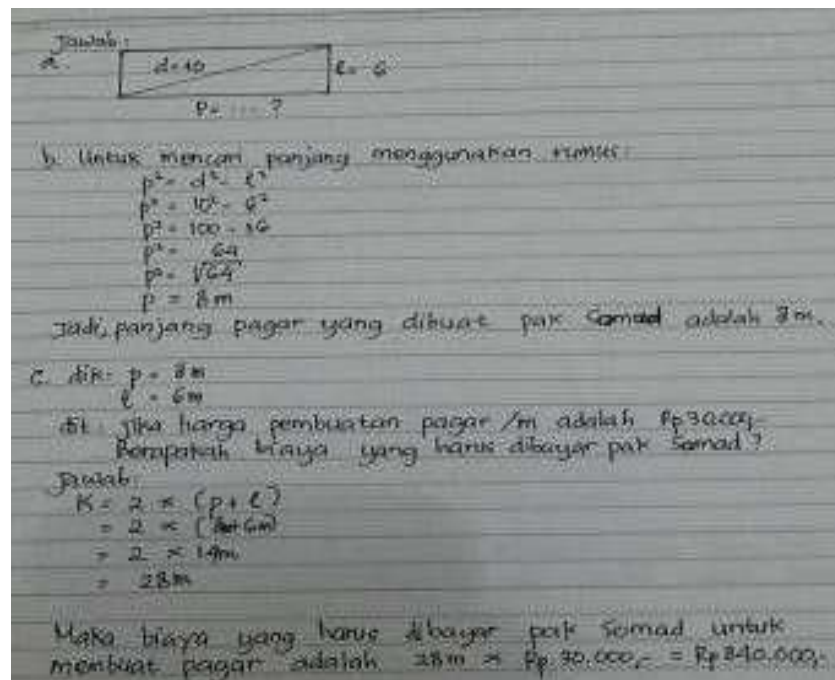 Jawab:
a. d=10 l= 6
P= .... ?
b. Untuk mencari panjang menggunakan rumus:
p² = d² - l²
p² = 10² - 6²
p² = 100 - 36
p² = 64
p = √64
p = 8 m
Jadi, panjang pagar yang dibuat pak Somad adalah 8 m.
c. dik: p = 8 m
l = 6 m
dit: Jika harga pembuatan pagar /m adalah Rp 30.000,-
Berapakah biaya yang harus dibayar pak Somad?
Jawab:
K = 2 × (p + l)
= 2 × (8m+6m)
= 2 × 14m
= 28m
Maka biaya yang harus dibayar pak Somad untuk
membuat pagar adalah 28m × Rp 30.000,- = Rp 840.000,-